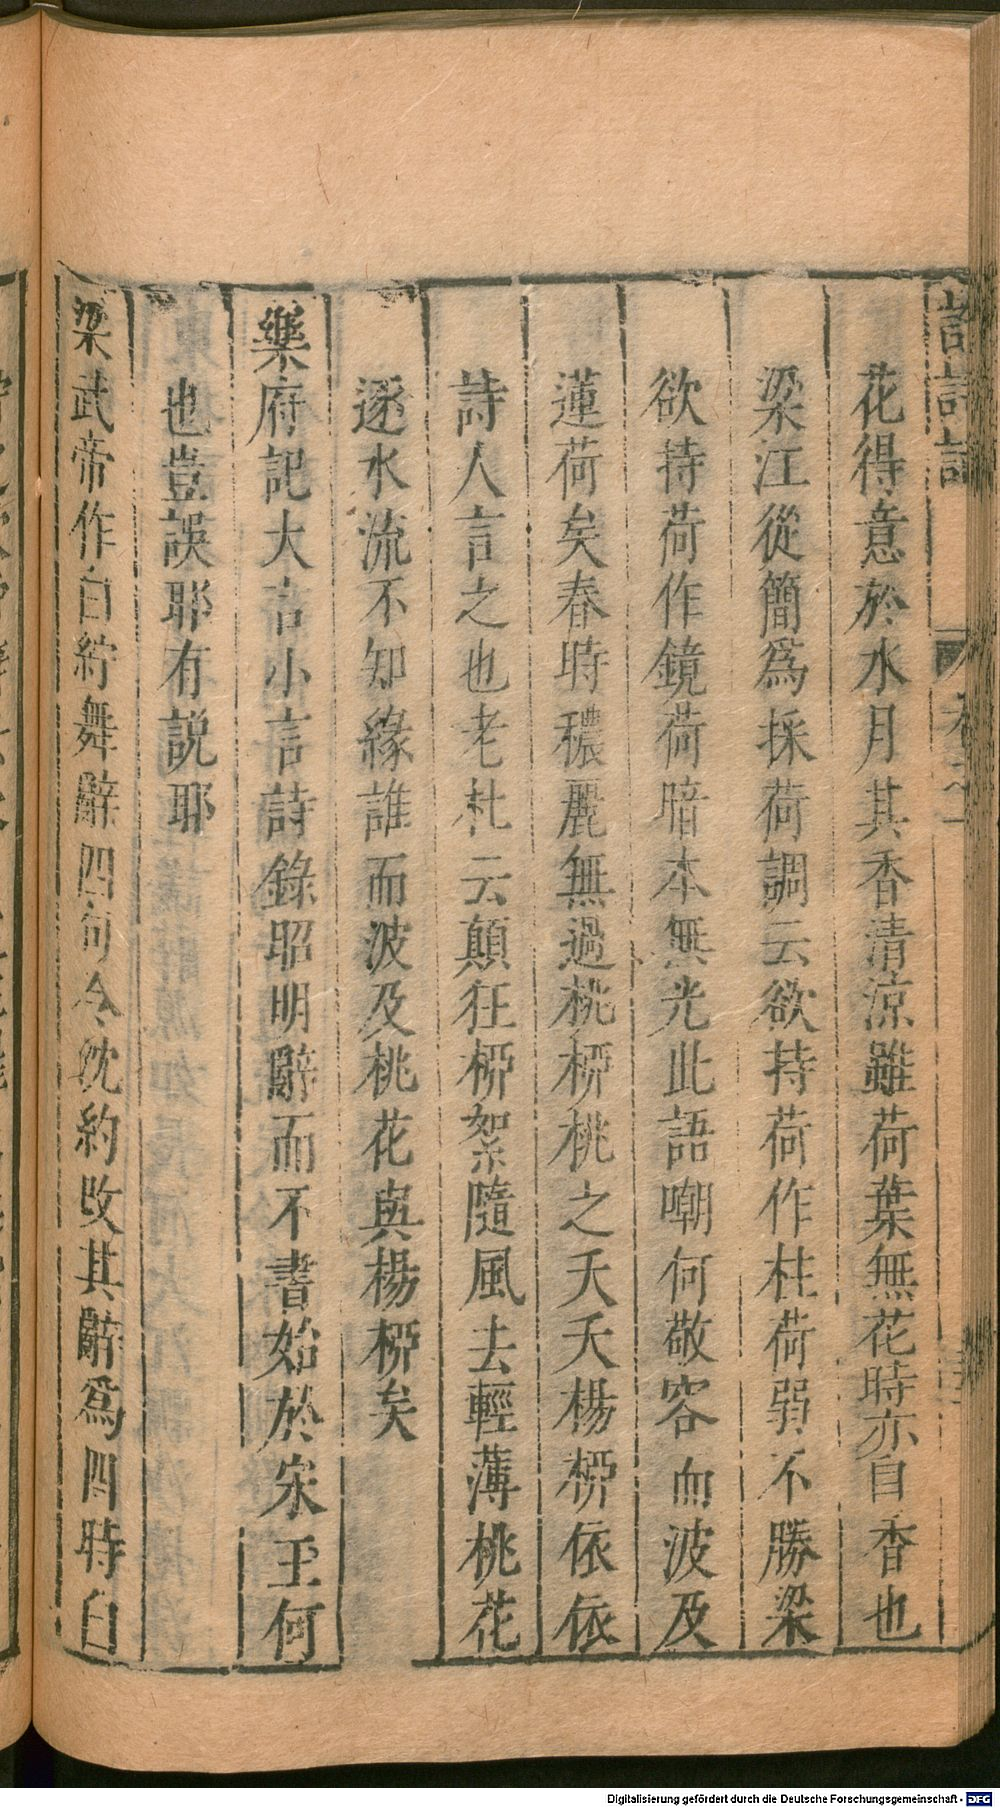 花得意於水月其香清涼雖荷葉無花時亦自香也
梁江從簡爲採荷調云欲持荷作柱荷弱不勝梁
欲持荷作鏡荷暗本無光此語嘲何敬容而波及
蓮荷矣春時穠麗無過桃桺桃之夭夭楊桺依依
詩人言之也老杜云顛狂桺絮隨風去輕薄桃花
逐水流不知緣誰而波及桃花與楊桺矣
樂府記大言小言詩錄昭明辭而不書始於宋玉何
也豈誤耶有説耶
梁武帝作白紵舞辭四句令沈約改其辭爲四時白
Digitalisierung gefördert durch die Deutsche Forschungsgemeinschaft - DFG